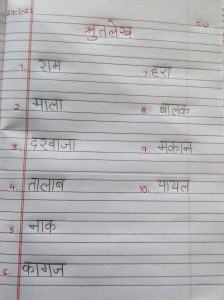 24-1-22
श्रुतलेख
1. राम
2. माला
3. दरवाजा
4. तालाब
5. नाक
6. कागज
7. हरा
8. बालक
9. मकान
10. पायल